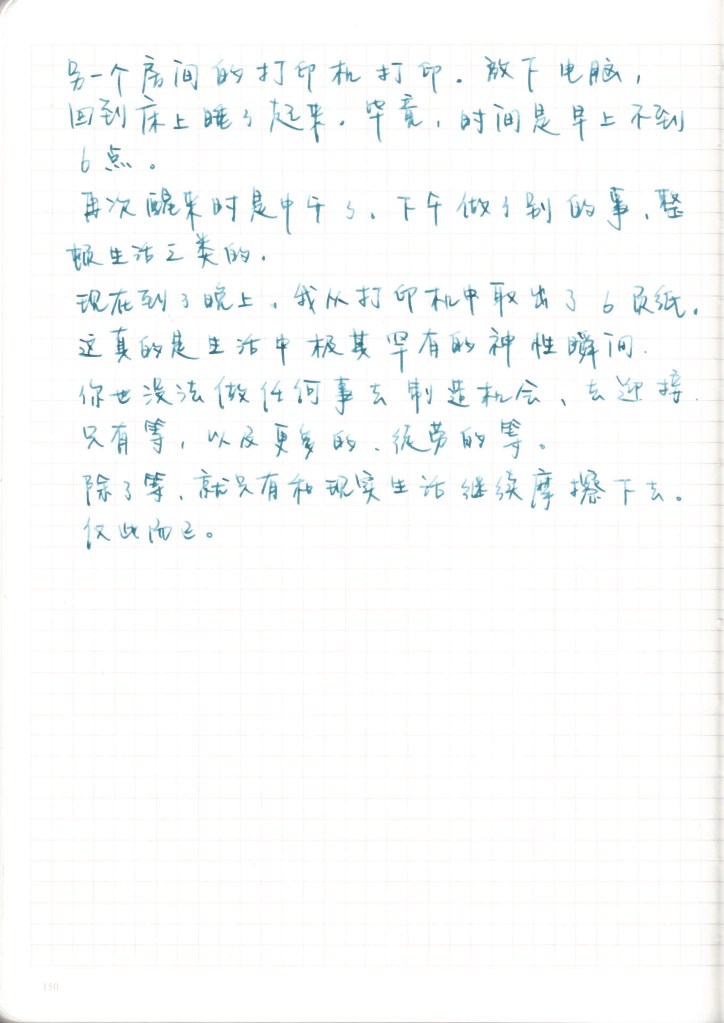 另一个房间的打印机打印。放下电脑，
回到床上睡了起来。毕竟，时间是早上不到
6点。
再次醒来时是中午了、下午做了别的事、整
顿生活之类的。
现在到了晚上，我从打印机中取出了6页纸。
这真的是生活中极其罕有的神性瞬间.
你也没法做任何事去制造机会、去迎接.
只有等，以及更多的、徒劳的等。
除了等、就只有和现实生活继续摩擦下去。
仅此而已。
150